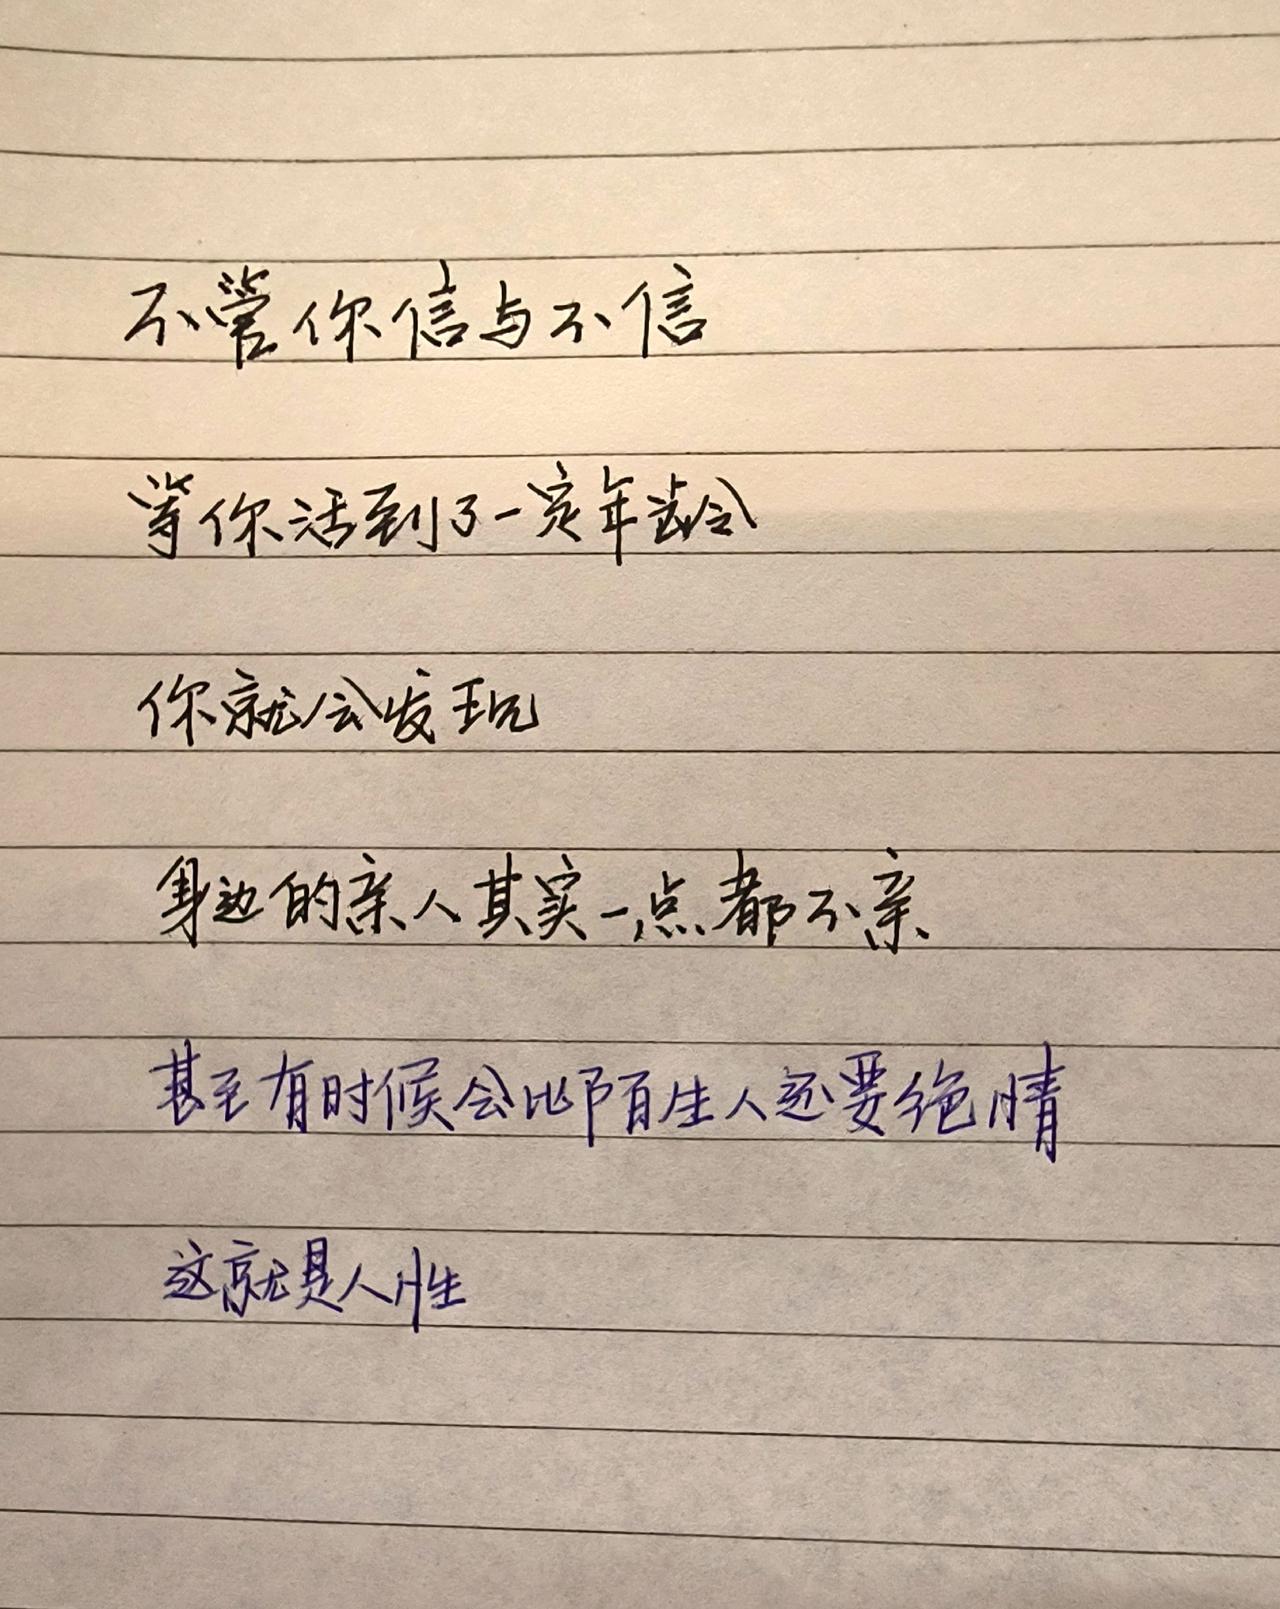 不管你信与不信
等你活到了一定年龄
你就会发现
身边的亲人其实一点都不亲
甚至有时候会比陌生人还要绝情
这就是人性